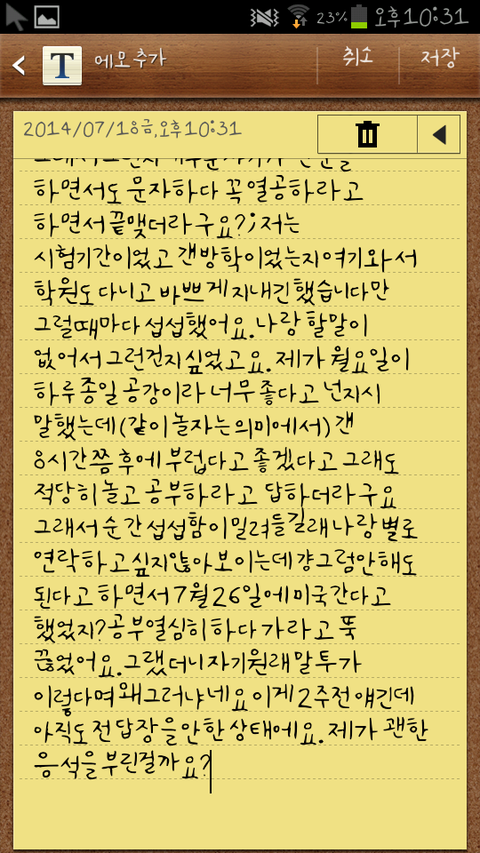 23% 오후 10:31
메모 추가 취소 저장
2014/07/18금, 오후 10:31
하면서도 문자하다 꼭 열공하라고
하면서 끝맺더라구요?; 저는
시험기간이었고 걘방학이었는지여기와서
학원도 다니고 바쁘게 지내긴했습니다만
그럴때마다 섭섭했어요. 나랑 할말이
없어서 그런건지싶었고요. 제가 월요일이
하루종일 공강이라 너무 좋다고 넌지시
말했는데(같이놀자는의미에서) 걘
8시간쯤 후에 부럽다고 좋겠다고 그래도
적당히놀고 공부하라고 답하더라구요
그래서 순간 섭섭함이밀려들길래 나랑 별로
연락하고싶지않아보이는데걍그럼안해도
된다고 하면서 7월26일에미국간다고
했었지?공부열심히하다 가라고 뚝
끊었어요. 그랬더니자기원래말투가
이렇다며왜그러냐네요이게2주전얘긴데
아직도전답장을안한상태에요. 제가 괜한
응석을부린걸까요?